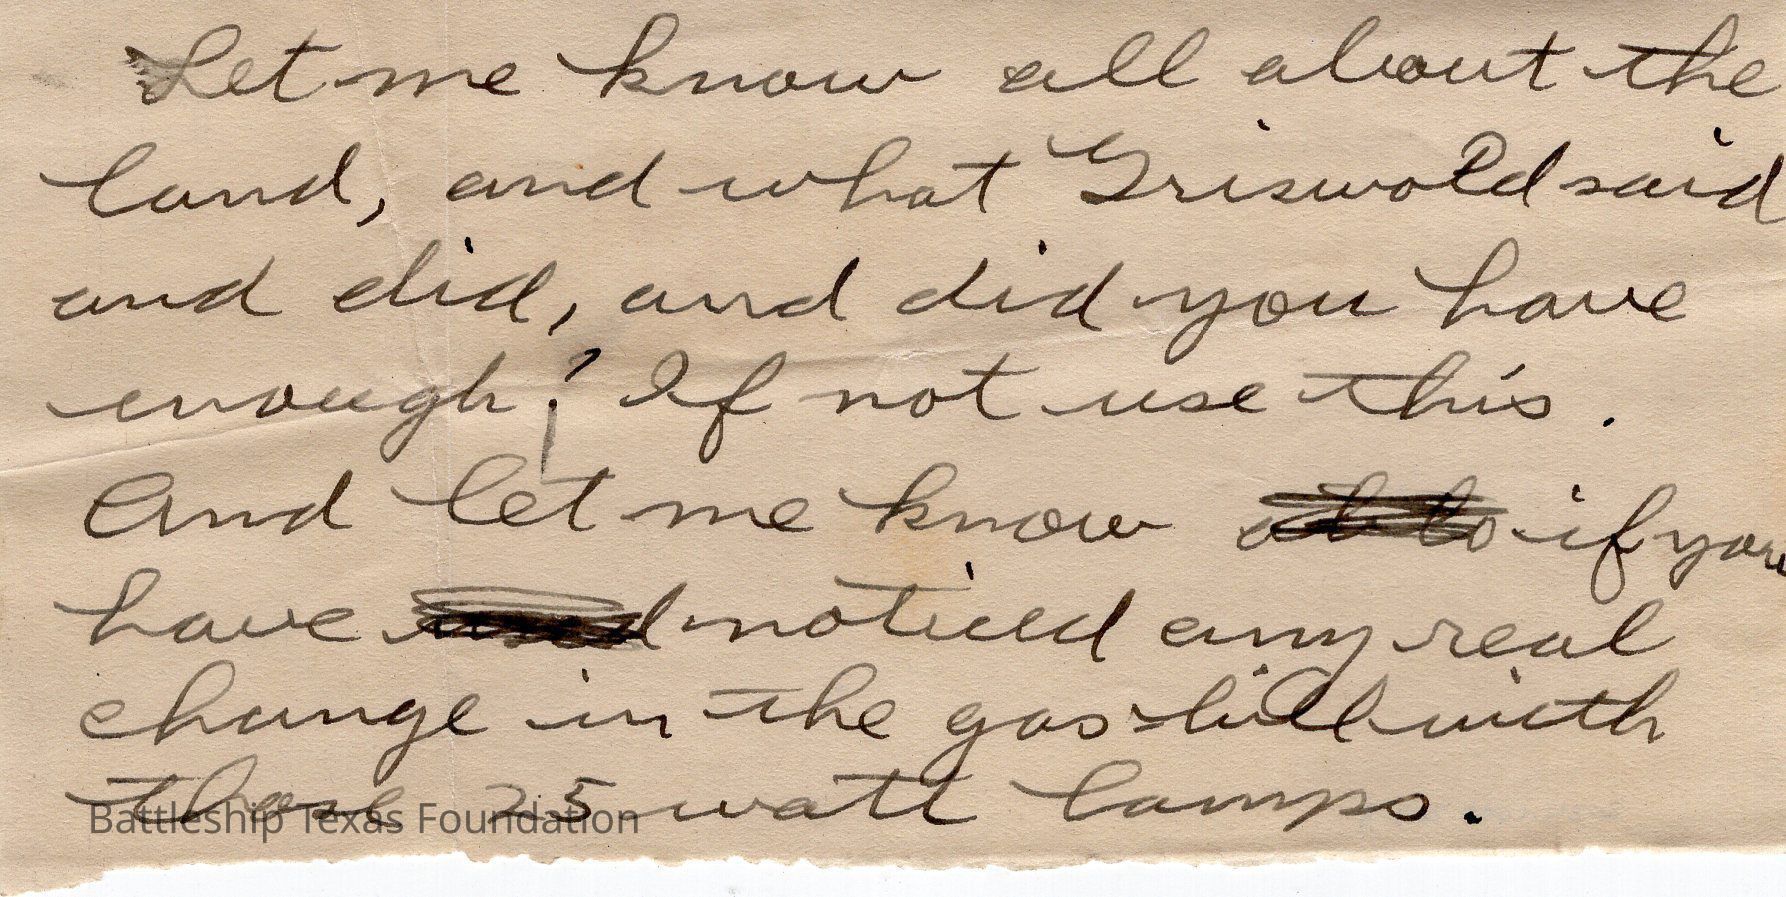 Let me know all about the
land, and what Griswold said
and did, and did you have
enough? If not use this.
And let me know if you
have noticed any real
change in the gas bill with
those 25 watt lamps.
Battleship Texas Foundation